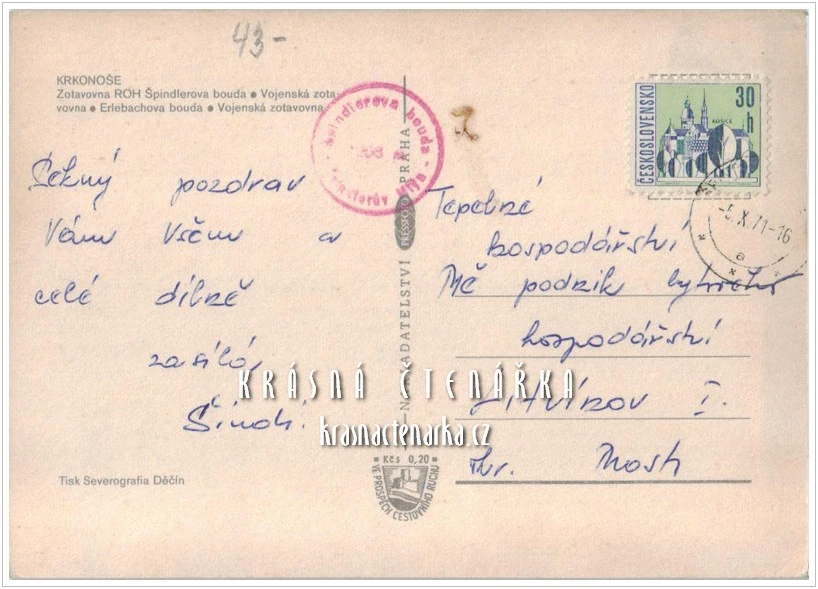 43-
KRKONOŠE
Zotavovna ROH Špindlerova bouda • Vojenská zota-
vovna • Erlebachova bouda • Vojenská zotavovna
Špindlerova bouda
Špindlerův Mlýn
ČESKOSLOVENSKO
30
h
KOŠICE
-5.X.71-16
a
Pekný pozdrav
Vám Všem a
celé dílně
zasílá
NAKLADATELSTVÍ PRESSFOTO PRAHA
Tepelné
hospodářství
Mě podnik bytového
hospodářství
LITVÍNOV I.
okr. Most
KRÁSNÁ ČTENÁŘKA
krasnactenarka.cz
Kčs 0,20
VE PROSPĚCH CESTOVNÍHO RUCHU
Tisk Severografia Děčín